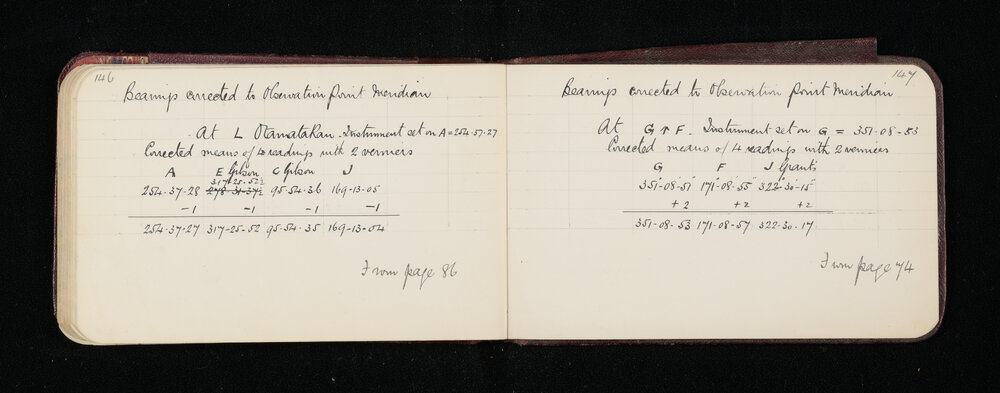 146
Bearings corrected to Observation Point Meridian
At L Otamatakau. Instrument set on A = 254.57.27
Corrected means of 4 readings with 2 verniers
A E Gibson C Gibson J
317-25-52½
254-37-28 278-31-37½ 95-54-36 169-13-05
-1 -1 -1 -1
254-37-27 317-25-52 95-54-35 169-13-04
From page 86
147
Bearings corrected to Observation Point Meridian
At G & F. Instrument set on G = 351-08-53
Corrected means of 4 readings with 2 verniers
G F J Grants
351°-08'-51" 171°-08'-55" 322°-30'-15"
+2 +2 +2
351-08-53 171-08-57 322-30-17
From page 74